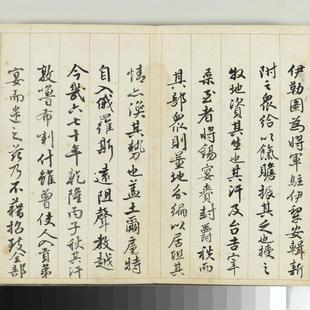 伊勒圖為將軍駐伊犁安輯新
附之眾給以餼贍振其乏也授之
牧地資其生也其汗及台吉宰
桑至者將錫宴賚封爵秩而
其部眾則益地分編以居聯其
情亦渙其勢也蓋土爾扈特
自入俄羅斯遠阻聲教越
今幾六七十年乾隆丙子秋其汗
敦魯布喇什雖曾使人入貢弟
宴而遣之茲乃不藉招致全部